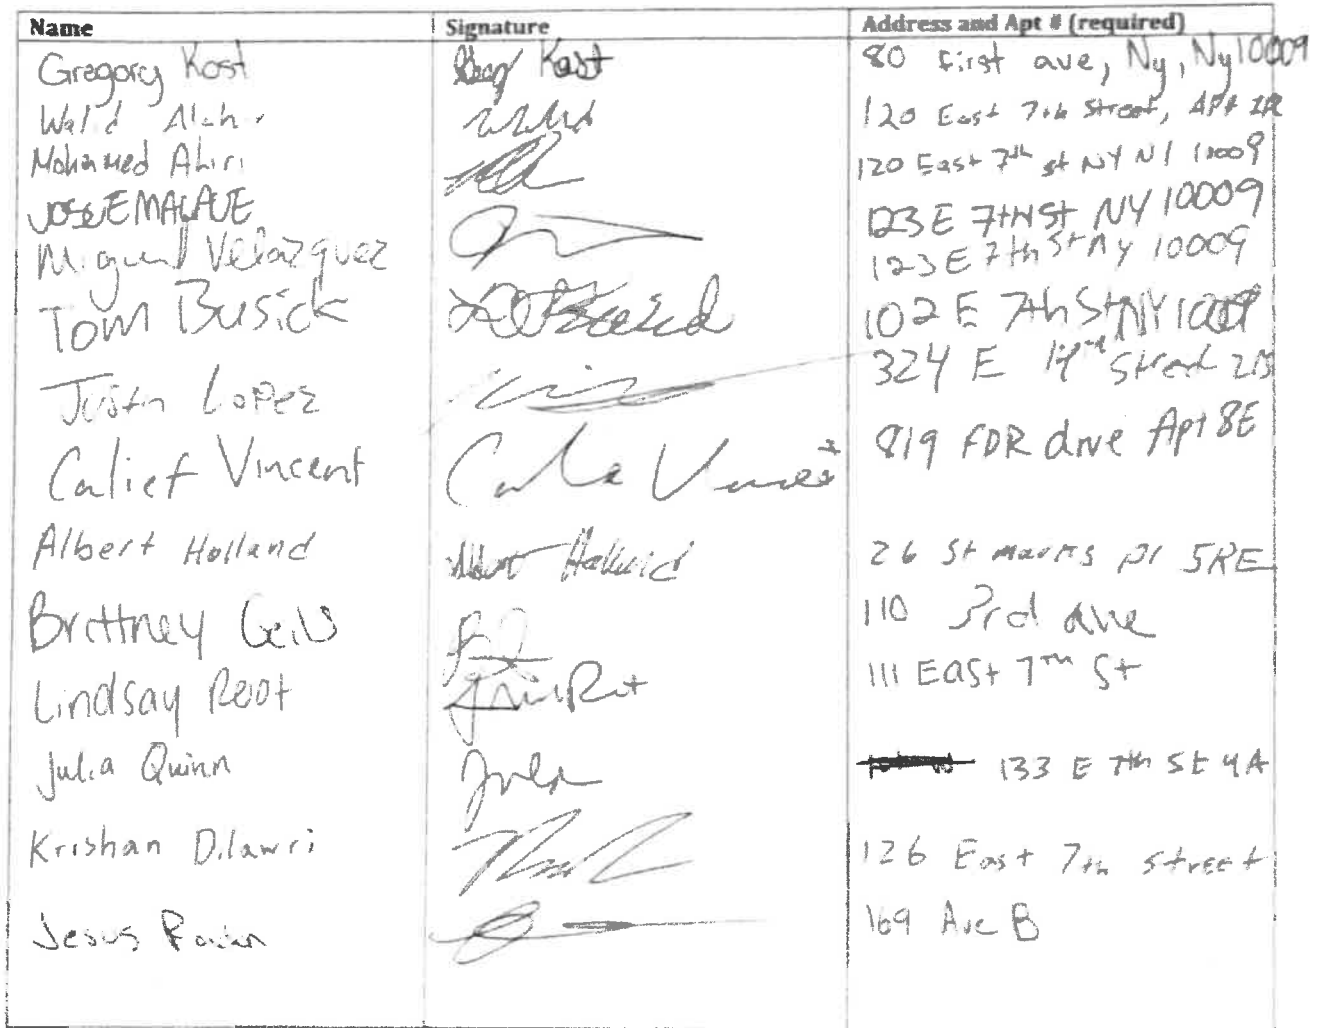 Name Signature Address and Apt # (required)
Gregory Kost Kost 80 First ave, Ny, Ny 10009
Walid 120 East 7th Street, APT
Mohamed Ahiri 120 East 7th st NY NY 10009
JOSUE MALAVE 123 E 7TH St NY 10009
Miguel Velazquez 123 E 7th St Ny 10009
Tom Busick 102 E 7th St NY 10009
Justin Lopez 324 E 14th Street
Calief Vincent 819 FDR drive Apt 8E
Albert Holland Albert Holland 26 St Marks Pl 5RE
Brittney 110 3rd ave
Lindsay Root 111 East 7th St
Julia Quinn Julia 133 E 7th St 4A
Krishan Dilawri 126 East 7th Street
Jesus 169 Ave B